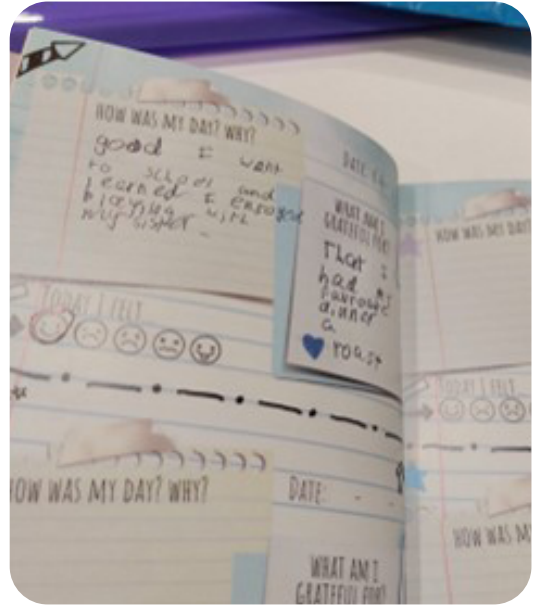 HOW WAS MY DAY? WHY?
good I want
to school and
learned I enjoyed
playing with
my sister
DATE:
WHAT AM I
GRATEFUL FOR?
That I
had my
favourite
dinner
a
roast
TODAY I FELT
HOW WAS MY DAY? WHY?
DATE: - -
WHAT AM I
GRATEFUL FOR?
HOW WAS MY DAY?
TODAY I FELT
HOW WAS